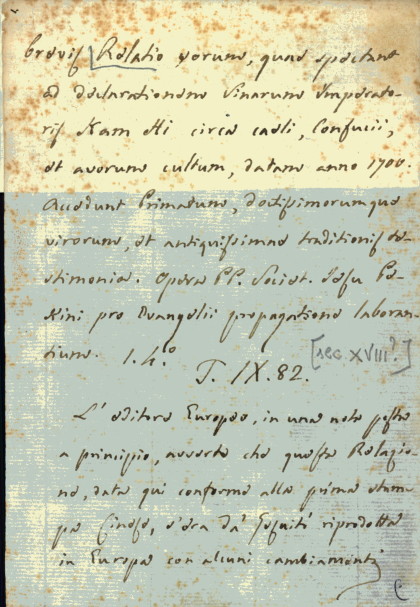 Brevis Relatio eorum, quae spectant
ad declarationem Sinarum Imperato-
ris Kam Hi circa caeli, Confucii,
et avorum cultum, datam anno 1700.
Accedunt Primatum, doctissimorumque
virorum, et antiquissimae traditionis te-
stimonia. Opera PP. Societ. Jesu Pe-
kini pro Evangelii propagatione laboran-
tium. 1.4.o
[sec XVIII?]
T. IX. 82.
L' editore Europeo, in una nota posta
a principio, avverte che questa Relazio-
ne, data qui conforme alla prima stam-
pa Cinese, s'era da' Gesuiti riprodotta
in Europa con alcuni cambiamenti